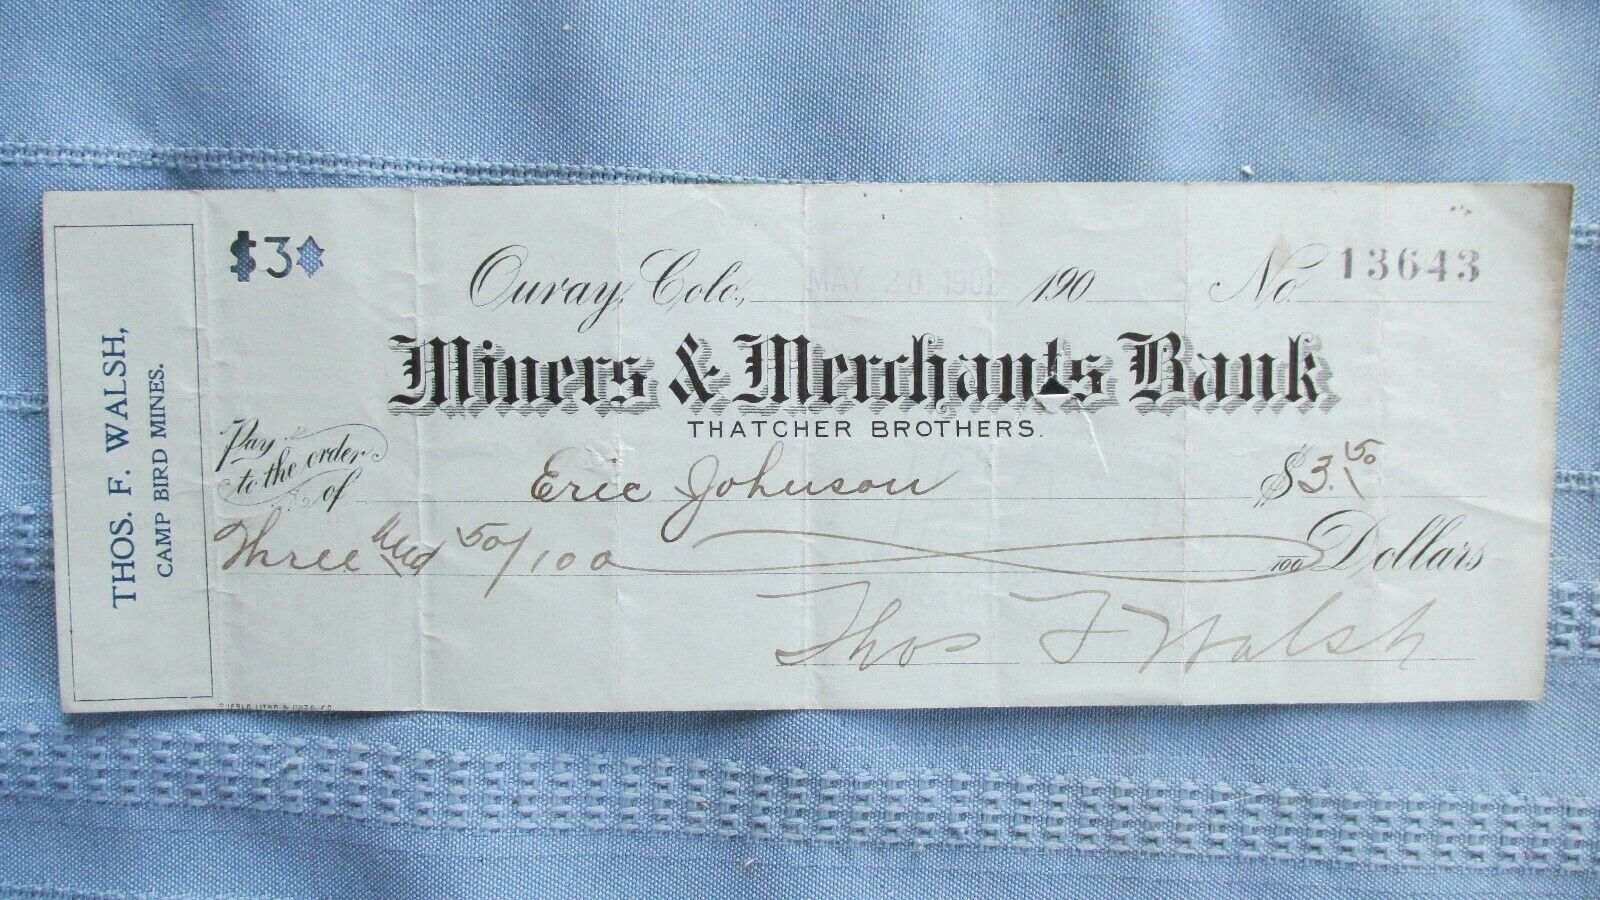 THOS. F. WALSH,
CAMP BIRD MINES.
$3
Ouray, Colo., MAY 20 1902 190 No. 13643
Miners & Merchants Bank
THATCHER BROTHERS.
Pay to the order of Eric Johnson $3.50
Three and 50/100 /100 Dollars
Thos F Walsh
PUEBLO LITHO & PRTG CO